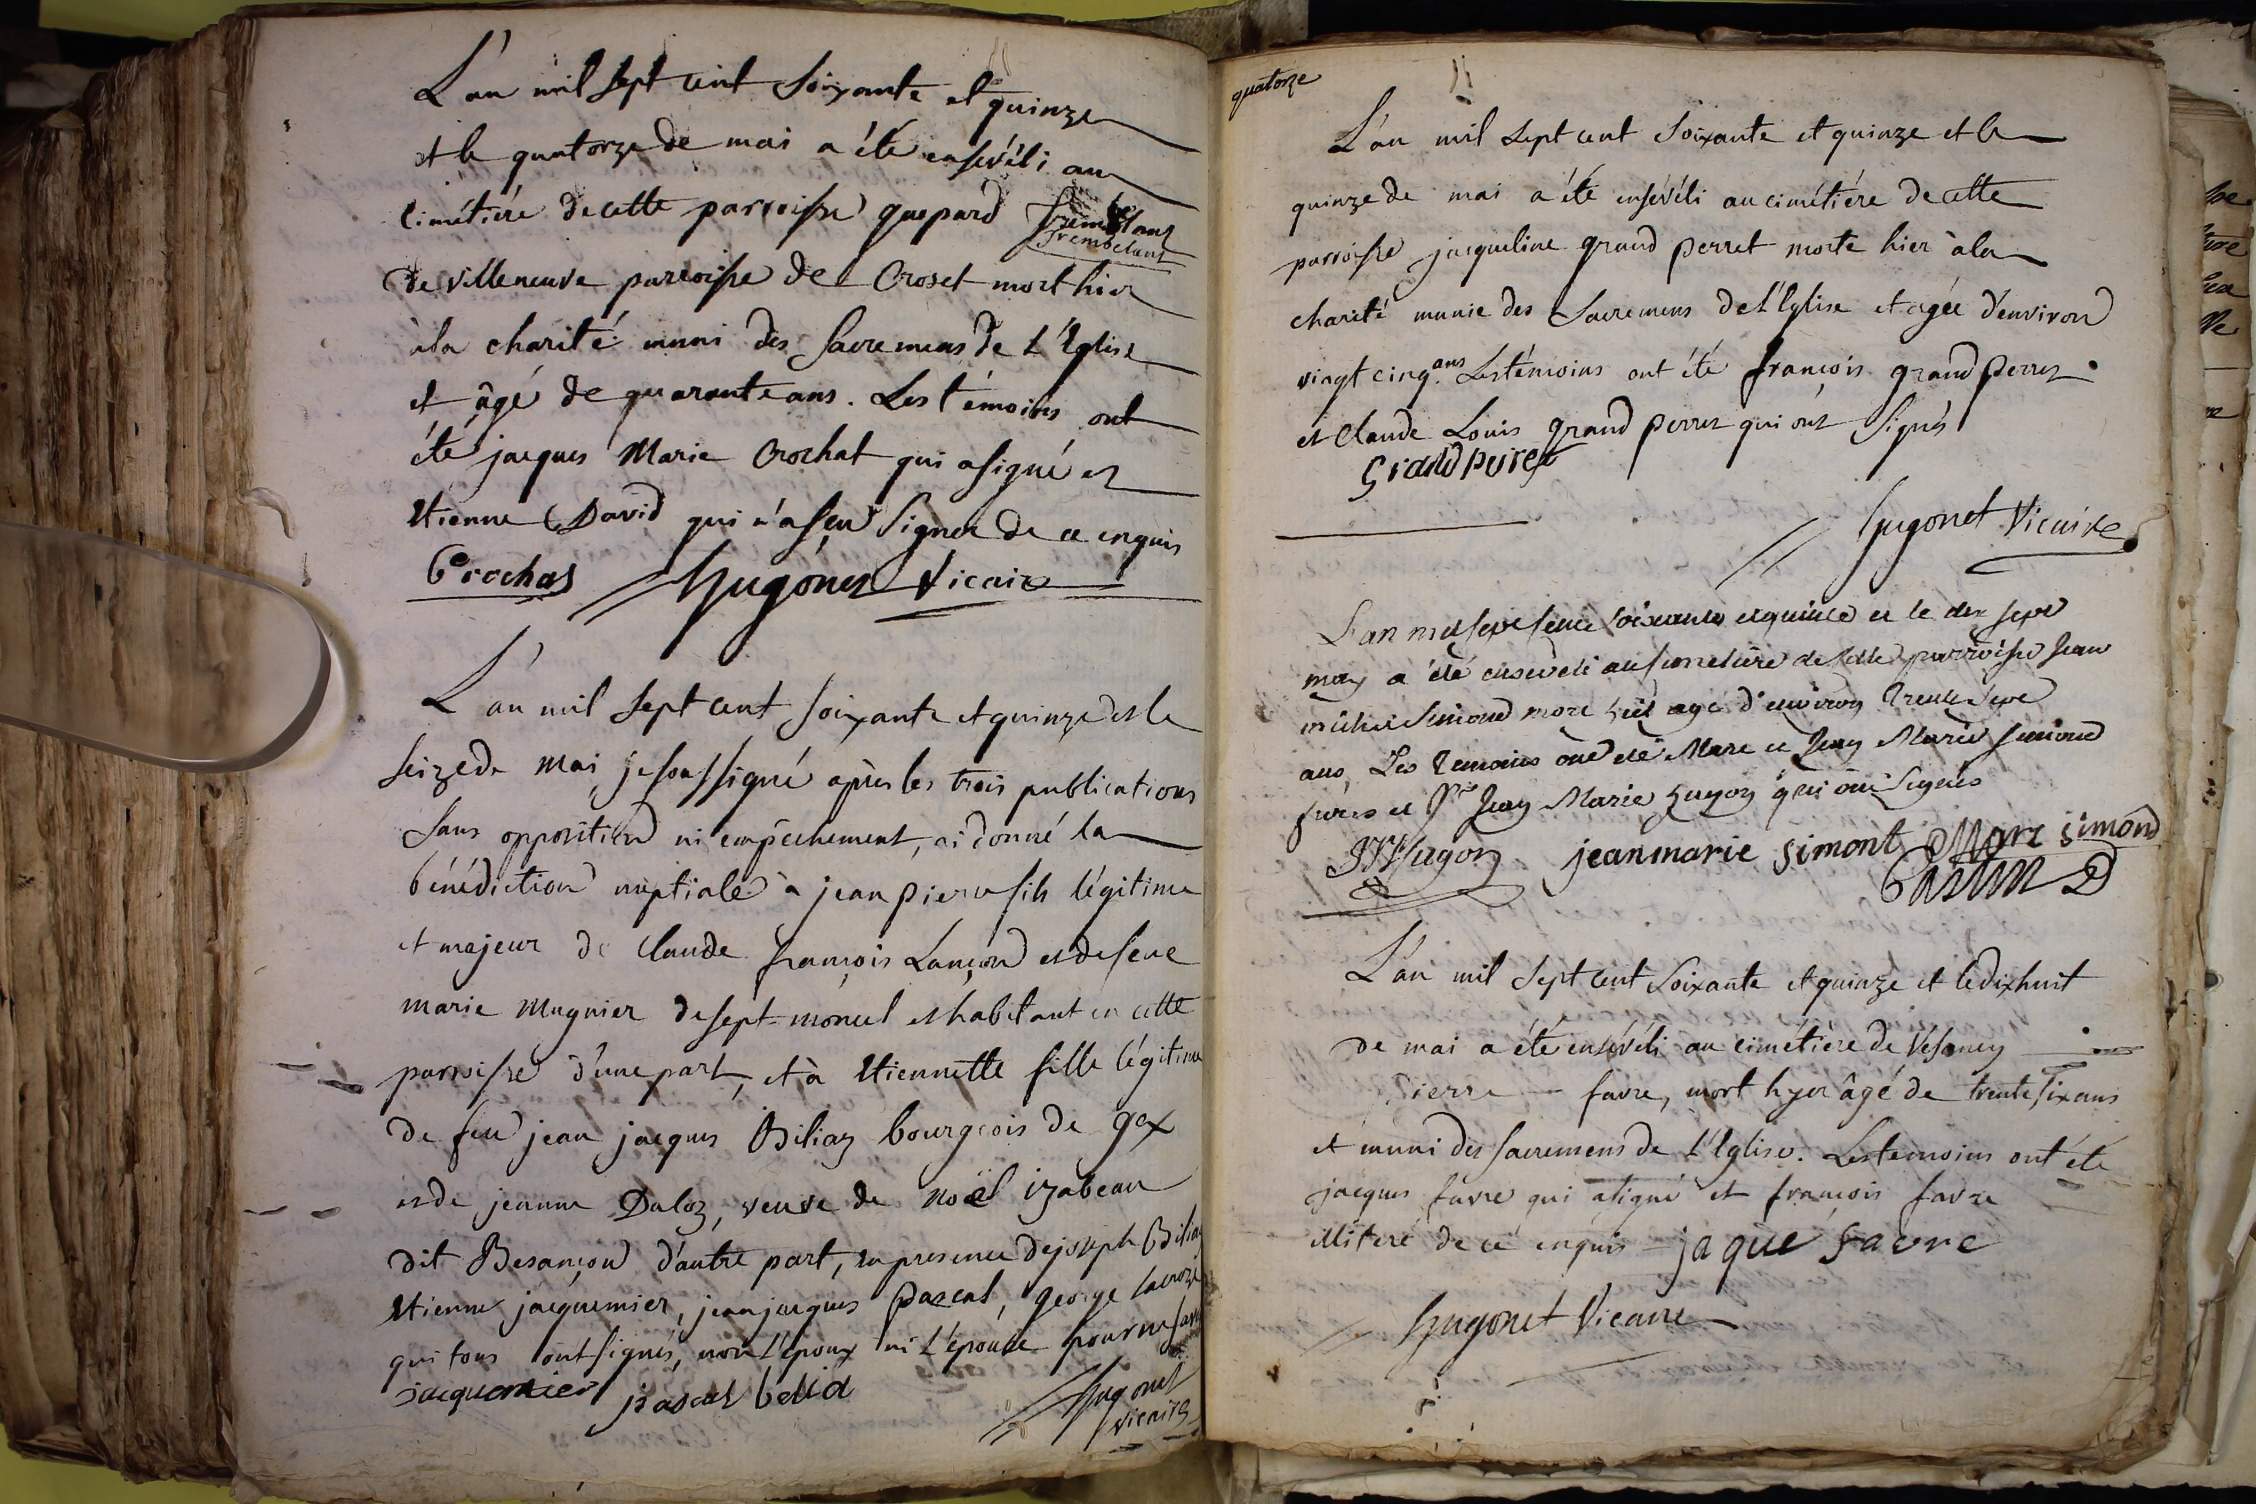 L'an mil sept cent soixante et quinze
et le quatorze de mai a été ensévéli au
cimétiére de cette parroisse guepard
tremblant
Tremblant
de villeneuve parroisse de Croset mort hier
à la charité muni des Sacremens de L'Eglise
et âgé de quarante ans. Les témoins ont
été jacques Marie Crochat qui a signé et
Etienne David qui n'a sçu signer de ce enquis
Crochas Hugonet Vicaire
L'an mil sept cent soixante et quinze et le
seize de mai je soussigné après les trois publications
sans opposition ni empêchement, ai donné la
bénédiction nuptiale à jean pierre fils légitime
et majeur de Claude françois Lançon et de feue
marie Mugnier de sept-moncel et habitant en cette
parroisse d'une part, et à Etiennette fille légitime
de feu jean jacques Biliaz bourgeois de gex
et de jeanne Daloz, veuve de Noël izabeau
dit Besançon d'autre part, en presence de joseph Biliaz
Etienne jacquemier, jean jacques pascal, george lacroze
qui tous ont signés, non l'époux ni L'épouse pour ne
jacquemier pascal belia
Hugonet
Vicaire
quatorze
L'an mil sept cent soixante et quinze et le
quinze de mai a été enséveli au cimétiére de cette
parroisse jacqueline grand perret morte hier à la
charité munie des Sacremens de L'Eglise et agée d'environ
vingt cinq ans. Les témoins ont été françois grand perret
et Claude Louis grand perret qui ont signés
Grand perret
Hugonet Vicaire
L'an mil sept sent soixante et quince et le dix sept
may a été enseveli au simetiére de cette parroisse Jean
michel Simond mort hier agé d'environ trente sept
ans, Les temoins ont été Marc et Jean Marie Simond
freres et Sr Jean Marie hugon qui ont signés
JM hugon jean marie simont Marc simond
Castin
L'an mil sept cent soixante et quinze et le dix huit
de mai a été enséveli au cimétiére de Vésancy
Pierre favre, mort hyer âgé de trente six ans
et muni des sacremens de l'Eglise. Les témoins ont été
jacques favre qui a signé et françois favre
illiteré de ce enquis jaque favre
Hugonet Vicaire